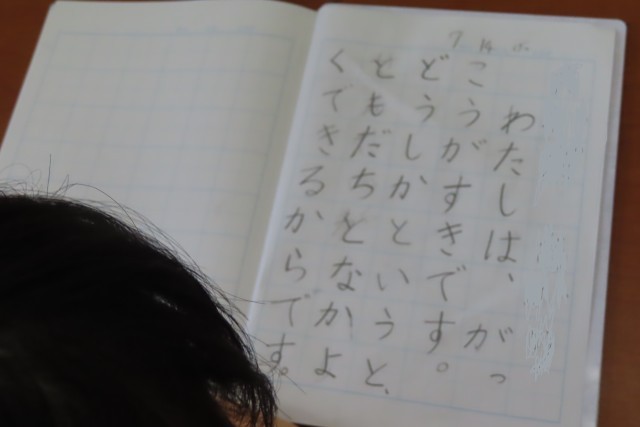 7 14
わたしは、がっ
こうがすきです。
どうしかというと、
ともだちとなかよ
くできるからです。